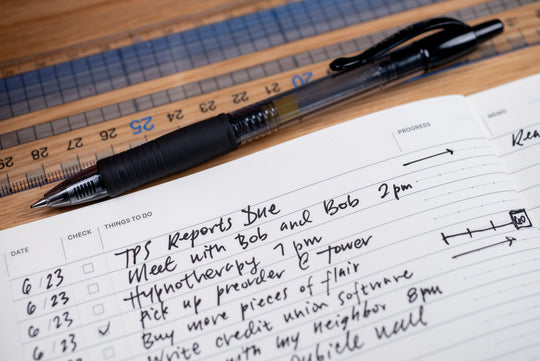 29 28 27 26 25 24 23 22 21 20
DATE CHECK THINGS TO DO PROGRESS MEMO
6/23 TPS Reports Due
6/23 Meet with Bob and Bob 2pm
6/23 Hypnotherapy 7pm
6/23 ✓ Pick up preorder @ Tower
Buy more pieces of flair
Write credit union software
with my neighbor 8pm
cubicle wall